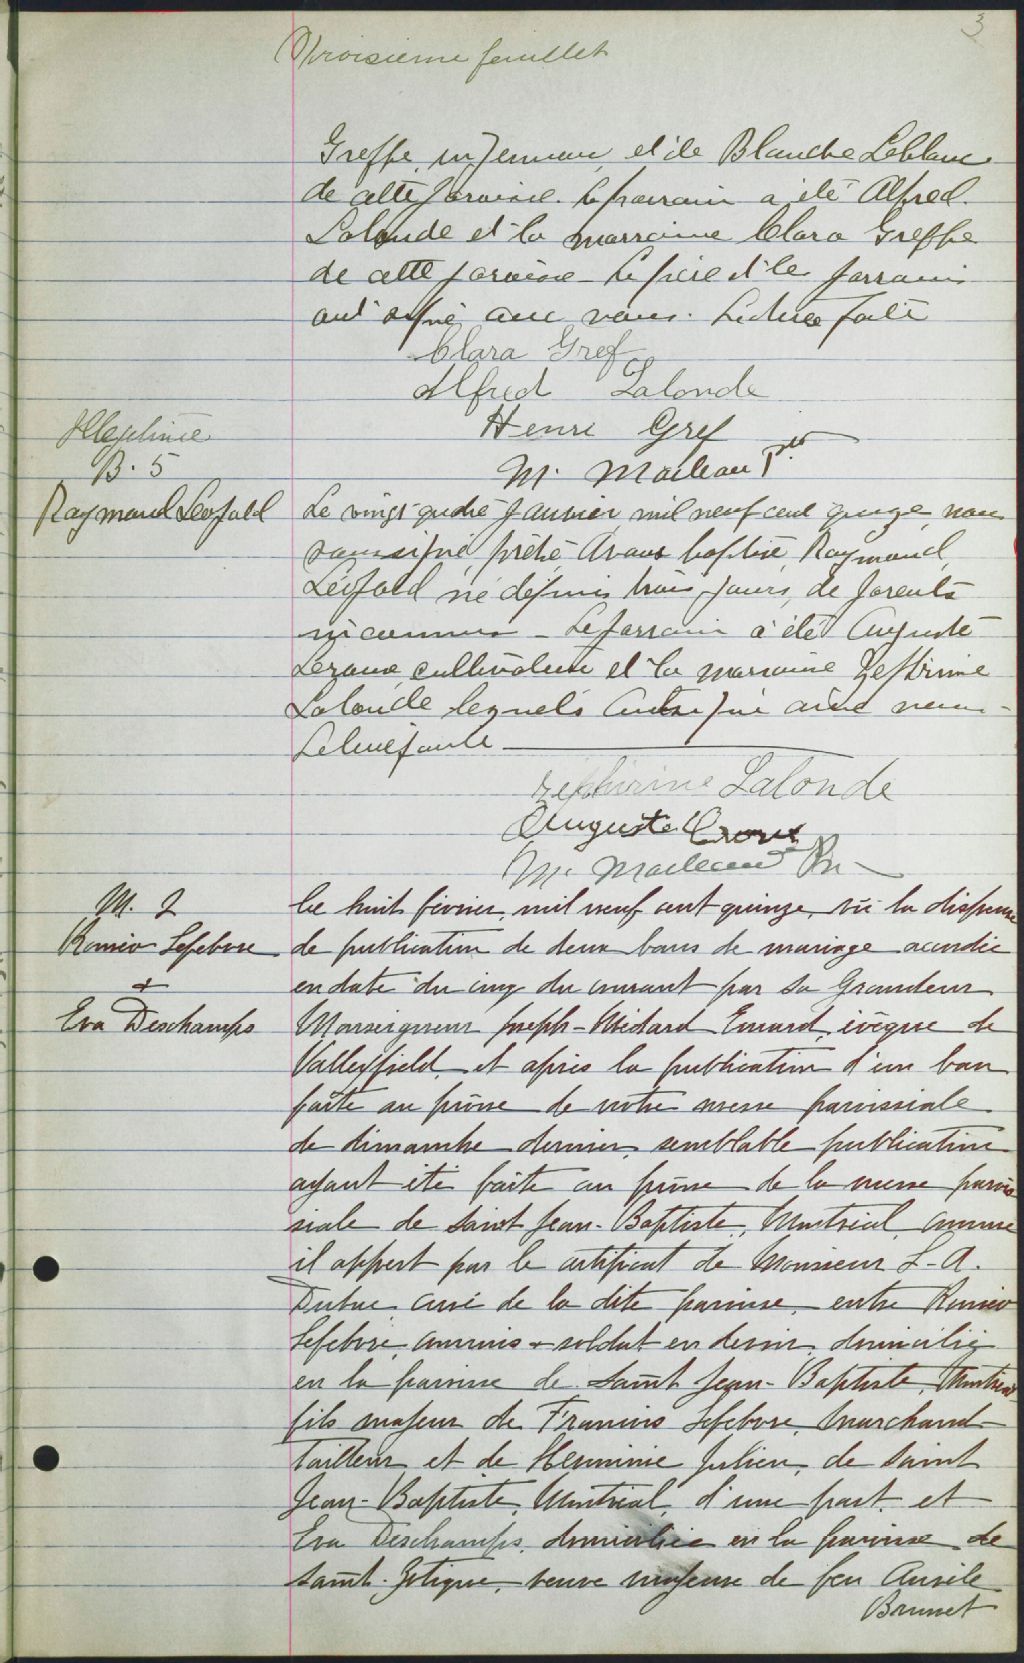 3
Troisieme feuillet
Greffe ingenieur, et de Blanche Leblanc
de cette paroisse. Le parrain a été Alfred
Lalonde et la marraine Clara Greffe
de cette paroisse - Le père et le parrain
ont signé avec nous. Lecture faite
Clara Gref
Alfred Lalonde
Henri Gref
M. Mailleau Ptre
Illegitime
B. 5
Raymond Léopold
Le vingt quatre Janvier mil neuf cent quinze, nous
soussigné, prêtre, avons baptisé, Raymond,
Léopold né depuis trois jours, de parents
inconnus - Le parrain a été Auguste
Leroux, cultivateur et la marraine Zephirine
Lalonde lesquels ont signé avec nous -
Lecture faite
zephirine Lalonde
Auguste Leroux
M. Mailleau Ptr
M. 2
Roméo Lefebvre
+
Eva Deschamps
Le huit février, mil neuf cent quinze, vu la dispense
de publication de deux bans de mariage accordée
en date du cinq du courant par sa Grandeur
Monseigneur Joseph-Médard Emard, évêque de
Valleyfield, et après la publication d'un ban
faite au prône de notre messe paroissiale
de dimanche dernier, semblable publication
ayant été faite au prône de la messe parois
siale de Saint Jean-Baptiste, Montréal, comme
il appert par le certificat de Monsieur L-A.
Dubuc curé de la dite paroisse, entre Roméo
Lefebvre, commis + soldat en devoir, domicilié
en la paroisse de Saint Jean-Baptiste, Montréal
fils majeur de Francois Lefebvre, marchand-
tailleur et de Herminie Julien, de Saint
Jean-Baptiste, Montréal, d'une part, et
Eva Deschamps, domiciliée en la paroisse de
Saint-Zotique, veuve majeure de feu Ausile
Brunet